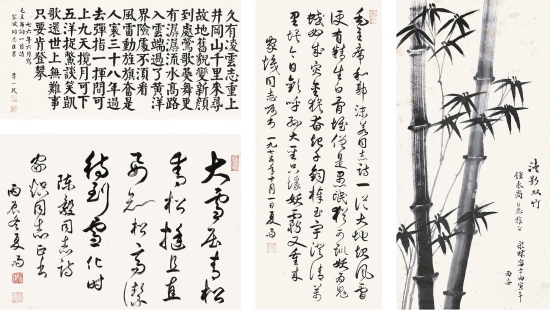 久有凌雲志重上
井岡山千里來尋
故地舊貌變新顏
到處鶯歌燕舞更
有潺潺流水高路
入雲端過了黃洋
界險處不須看
風雷動旌旗奮是
人寰三十八年過
去彈指一揮間可
上九天攬月可下
五洋捉鱉談笑凱
歌還世上無難事
只要肯登攀
李一氓
大雪壓青松
青松挺且直
要知松高潔
待到雪化時
陳毅同志詩
同志正書
丙辰冬夏
毛主席和郭沫若同志詩一從大地起風雷
便有精生白骨堆僧是愚氓猶可訓妖為鬼
蜮必成災金猴奮起千鈞棒玉宇澄清萬
里埃今日歡呼孫大聖只緣妖霧又重來
同志一九七五年十月一日夏
双竹
丙寅年